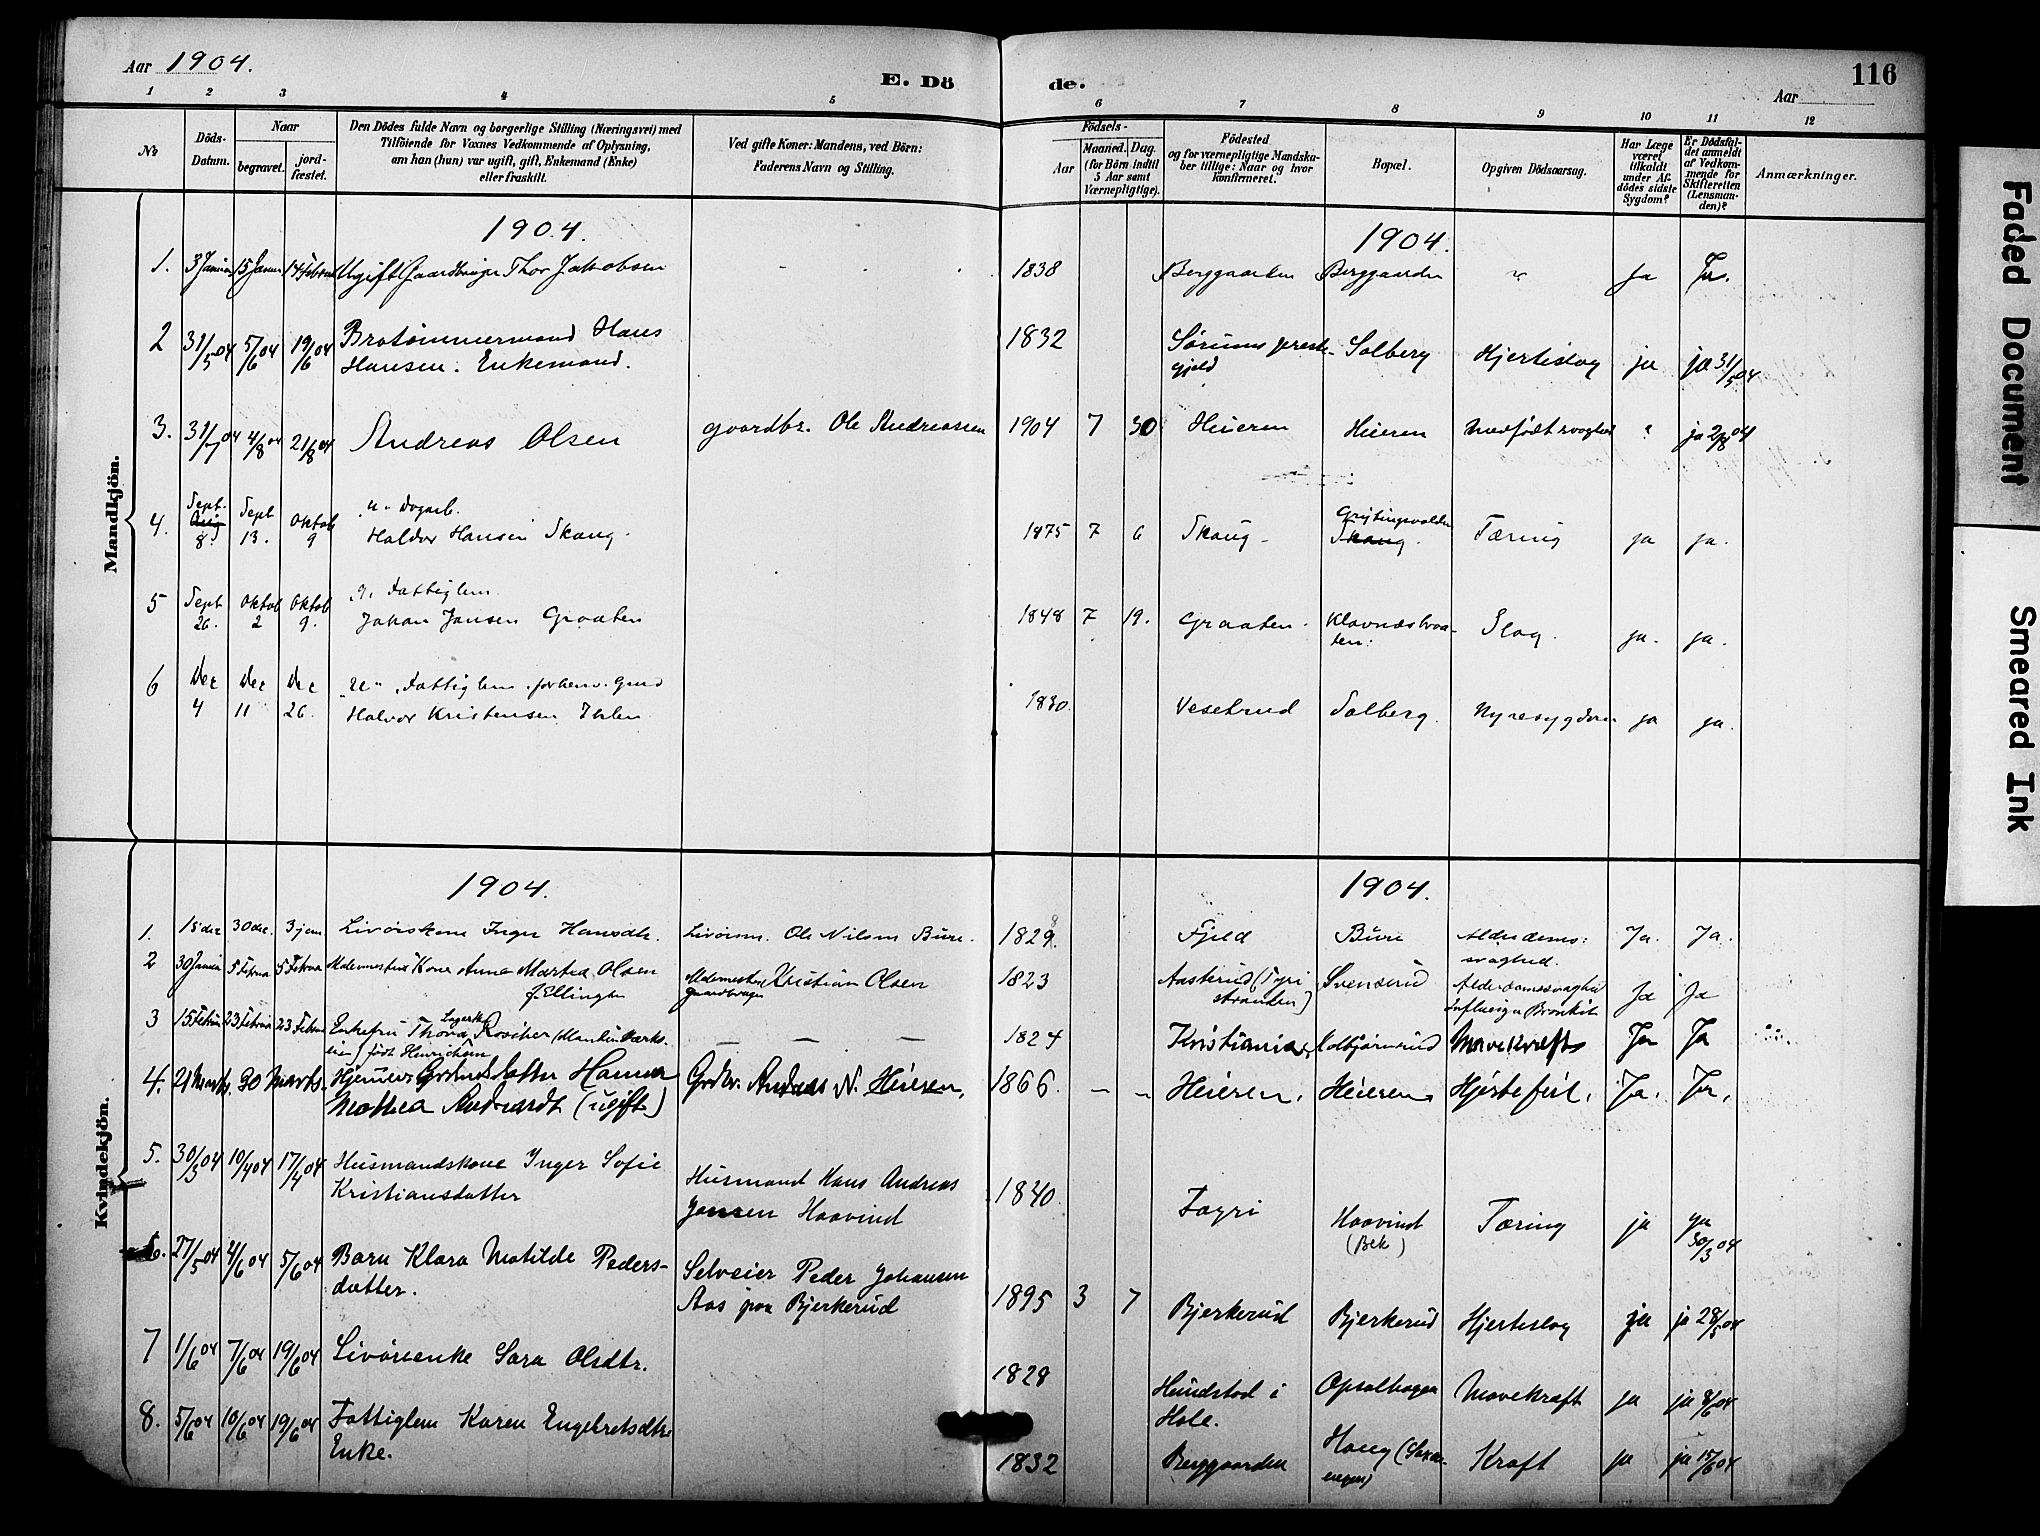 Aar 1904.
E. Dö
de.
116
Aar
1 2 3 4 5 6 7 8 9 10 11 12
No
Döds-Datum.
Naar
begravet.
jord-fæstet.
Den Dödes fulde Navn og borgerlige Stilling (Næringsvei) med
Tilföiende for Voxnes Vedkommende af Oplysning,
om han (hun) var ugift, gift, Enkemand (Enke)
eller fraskilt.
Ved gifte Koner: Mandens, ved Börn:
Faderens Navn og Stilling.
Födsels-
Aar
Maaned. Dag.
(for Börn indtil
5 Aar samt
Værnepligtige).
Födested
og for værnepligtige Mandska-
ber tillige: Naar og hvor
konfirmeret.
Bopæl.
Opgiven Dödsaarsag.
Har Læge
været
tilkaldt
under Af-
dödes sidste
Sygdom?
Er Dödsfal-
det anmeldt
af Vedkom-
mende for
Skifteretten
(Lensman-
den)?
Anmærkninger.
Mandkjön.
1904. 1904.
1. 3 Januar 15 Januar 14 Februar Ugift Gaardbruger Thor Jakobsen 1838 Berggaarden Berggaarden Ja Ja.
2 31/5 04 5/6 04 19/6 04 Brotömmermand Hans 1832 Sörums preste- Solberg Hjerteslag ja ja 31/5 04
Hansen. Enkemand. gjeld
3. 31/7 04 4/8 04 21/8 04 Andreas Olsen gaardbr. Ole Andreassen 1904 7 30 Heieren Heieren Medfödt svaghed ? ja 2/8 04
4. Sept. 8. Sept 13. Oktob 9 "u" Dagarb.
Haldor Hansen Skaug. 1875 7 6 Skaug Skaug. Tæring ja ja.
5 Sept 26. Oktob 2 Oktob 9. "g" Fattiglem
Johan Jansen Graaten 1848 7 19. Graaten Slag. ja. ja.
6 Dec 4 Dec 11 Dec 26. "u" Fattiglem
Halvor Kristensen 1830. Vesetrud Solberg. Nyresygdom ja ja.
Kvindekjön.
1904. 1904.
1. 15 dec 30 dec. 3 jan Livörskone Inger Hansdtr. Livörsm. Ole Nilsen Bure. 1829 Fjeld Bure Alderdoms- Ja. Ja.
svaghed.
2 30 Januar 5 Februar 5 Februar Malermesters Kone Anne Martea Olsen Malermester Kristian Olsen 1823 Aasterud (Tyri Svenserud Alderdomssvaghed Ja Ja
f. Ellingsen Gaardbruger stranden) Influenza Bronkit
3 15 Februar 23 Februar 23 Februar Enkefru Thora 1824 Kristiania Kolbjörnsrud Mavekræft Ja Ja
född Hinrichsen
4. 21 Marts. 30 Marts. Hjemmev. Grdmdsdatter Hanna Grdbr. Andreas N. Heieren. 1866. Heieren. Heieren Hjertefeil. Ja. Ja.
Mathea Andreasdt (ugift)
5. 30/3 04 10/4 04 17/4 04 Husmandskone Inger Sofie Husmand Hans Andreas 1840 Fagri Haavind Tæring ja ja 30/3 04
Kristiansdatter Jansen Haavind (Bek)
6. 27/5 04 4/6 04 5/6 04 Barn Klara Matilde Peders- Selveier Peder Johansen 1895 3 7 Bjerkerud Bjerkerud Hjerteslag ja ja 28/5 04
datter. Aas paa Bjerkerud
7 1/6 04 7/6 04 19/6 04 Livörsenke Sara Olsdtr. 1828 Hundstad i Opsalhagen Mavekræft ja ja 8/6 04
Hole.
8. 5/6 04 10/6 04 19/6 04 Fattiglem Karen Engebretsdtr. 1832 Berggaarden Haug Kræft ja ja 15/6 04
Enke.
Faded Document
Smeared Ink